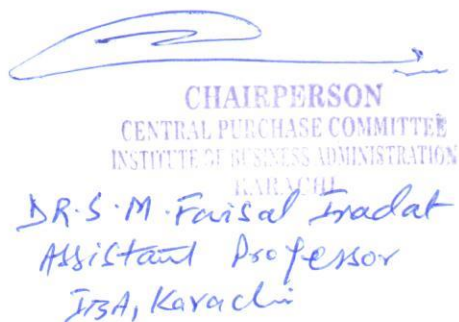 CHAIRPERSON
CENTRAL PURCHASE COMMITTEE
INSTITUTE OF BUSINESS ADMINISTRATION
KARACHI
DR. S. M. Faisal Iradat
Assistant Professor
IBA, Karachi